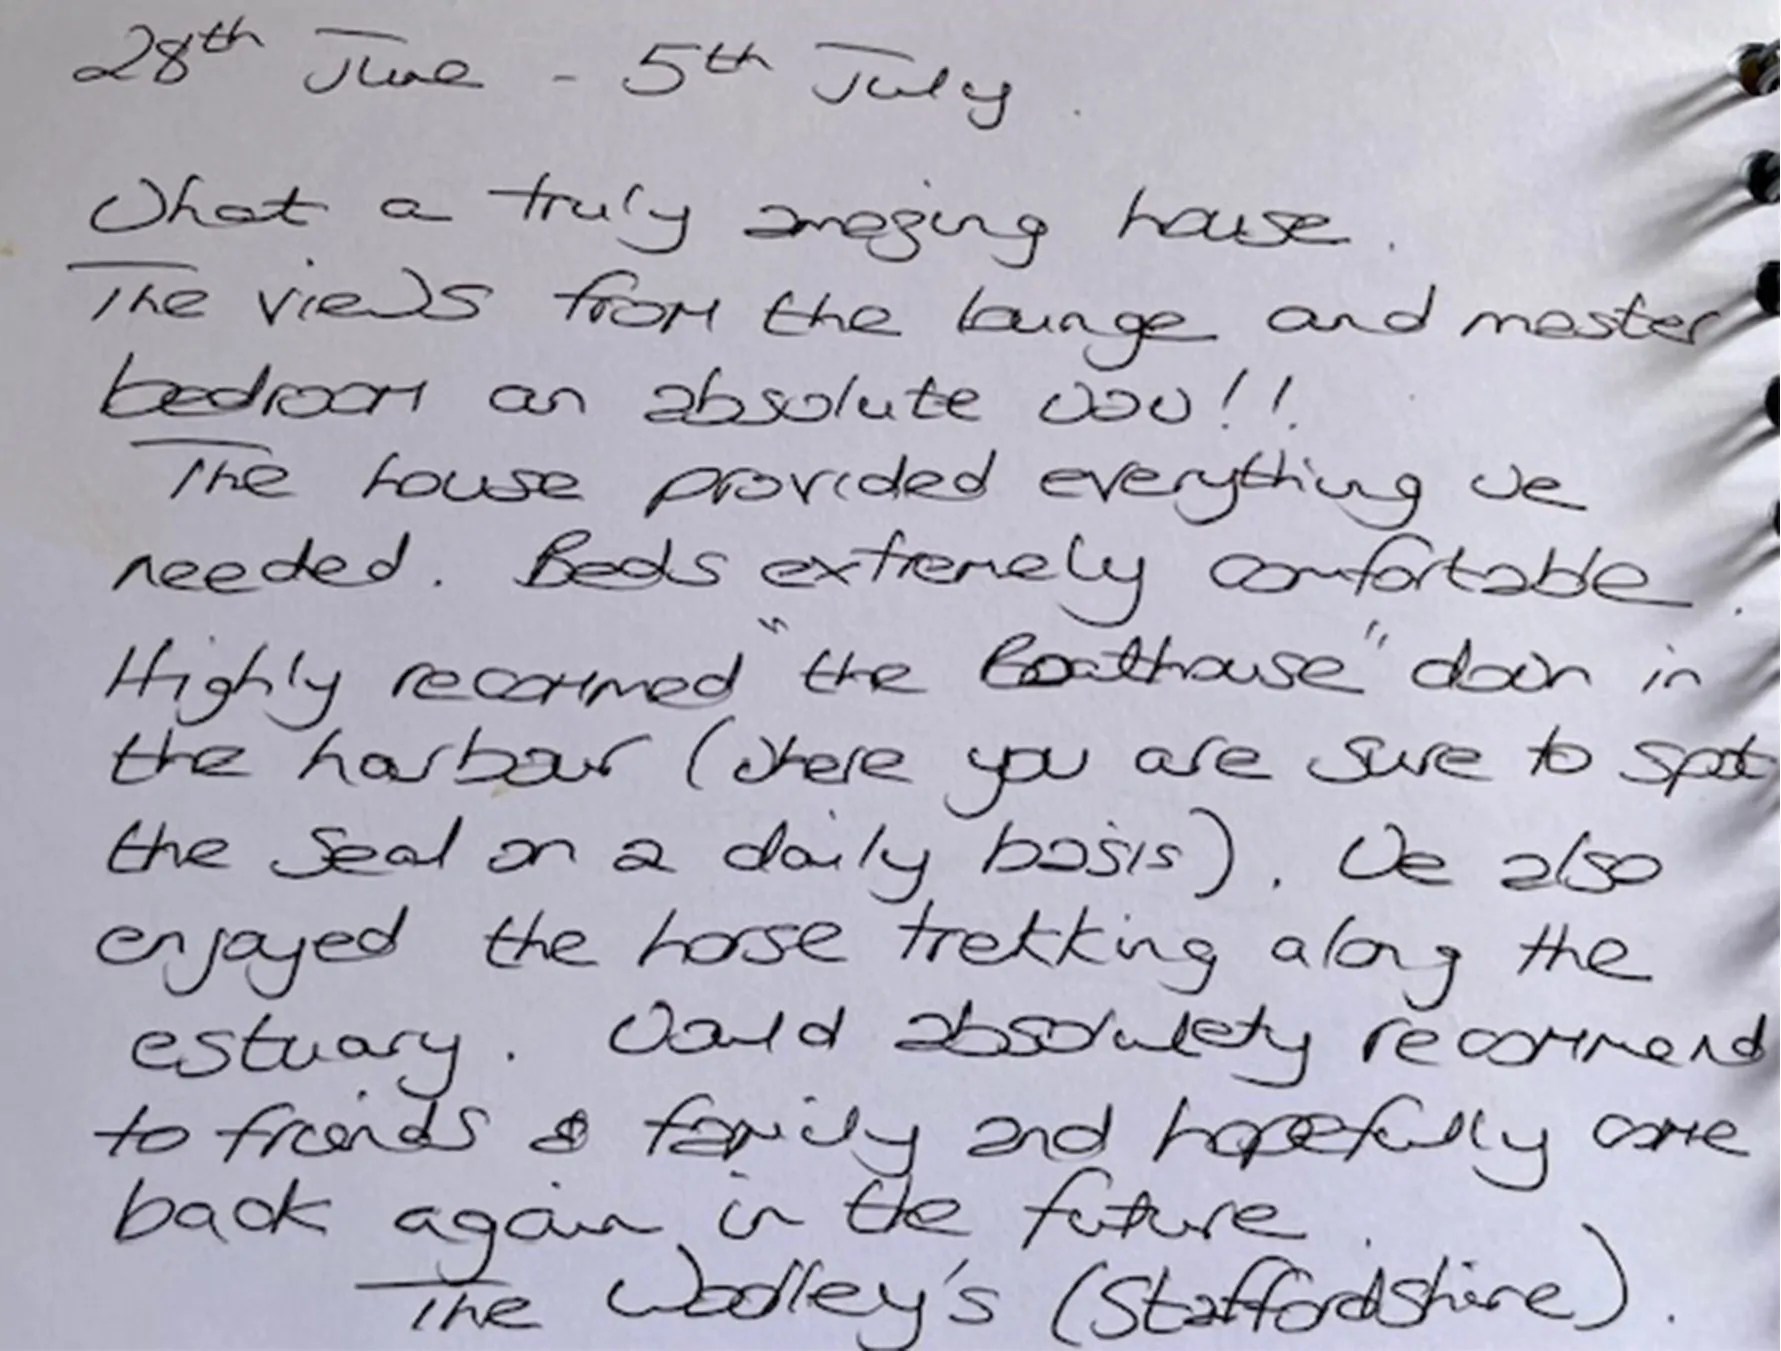 28th June - 5th July.
What a truly amazing house.
The views from the lounge and master
bedroom an absolute wow!!
The house provided everything we
needed. Beds extremely comfortable.
Highly recommed "the Boathouse" down in
the harbour (where you are sure to spot
the seal on a daily basis). We also
enjoyed the horse trekking along the
estuary. Would absolutely recommend
to friends & family and hopefully come
back again in the future.
The Woolley's (Staffordshire).